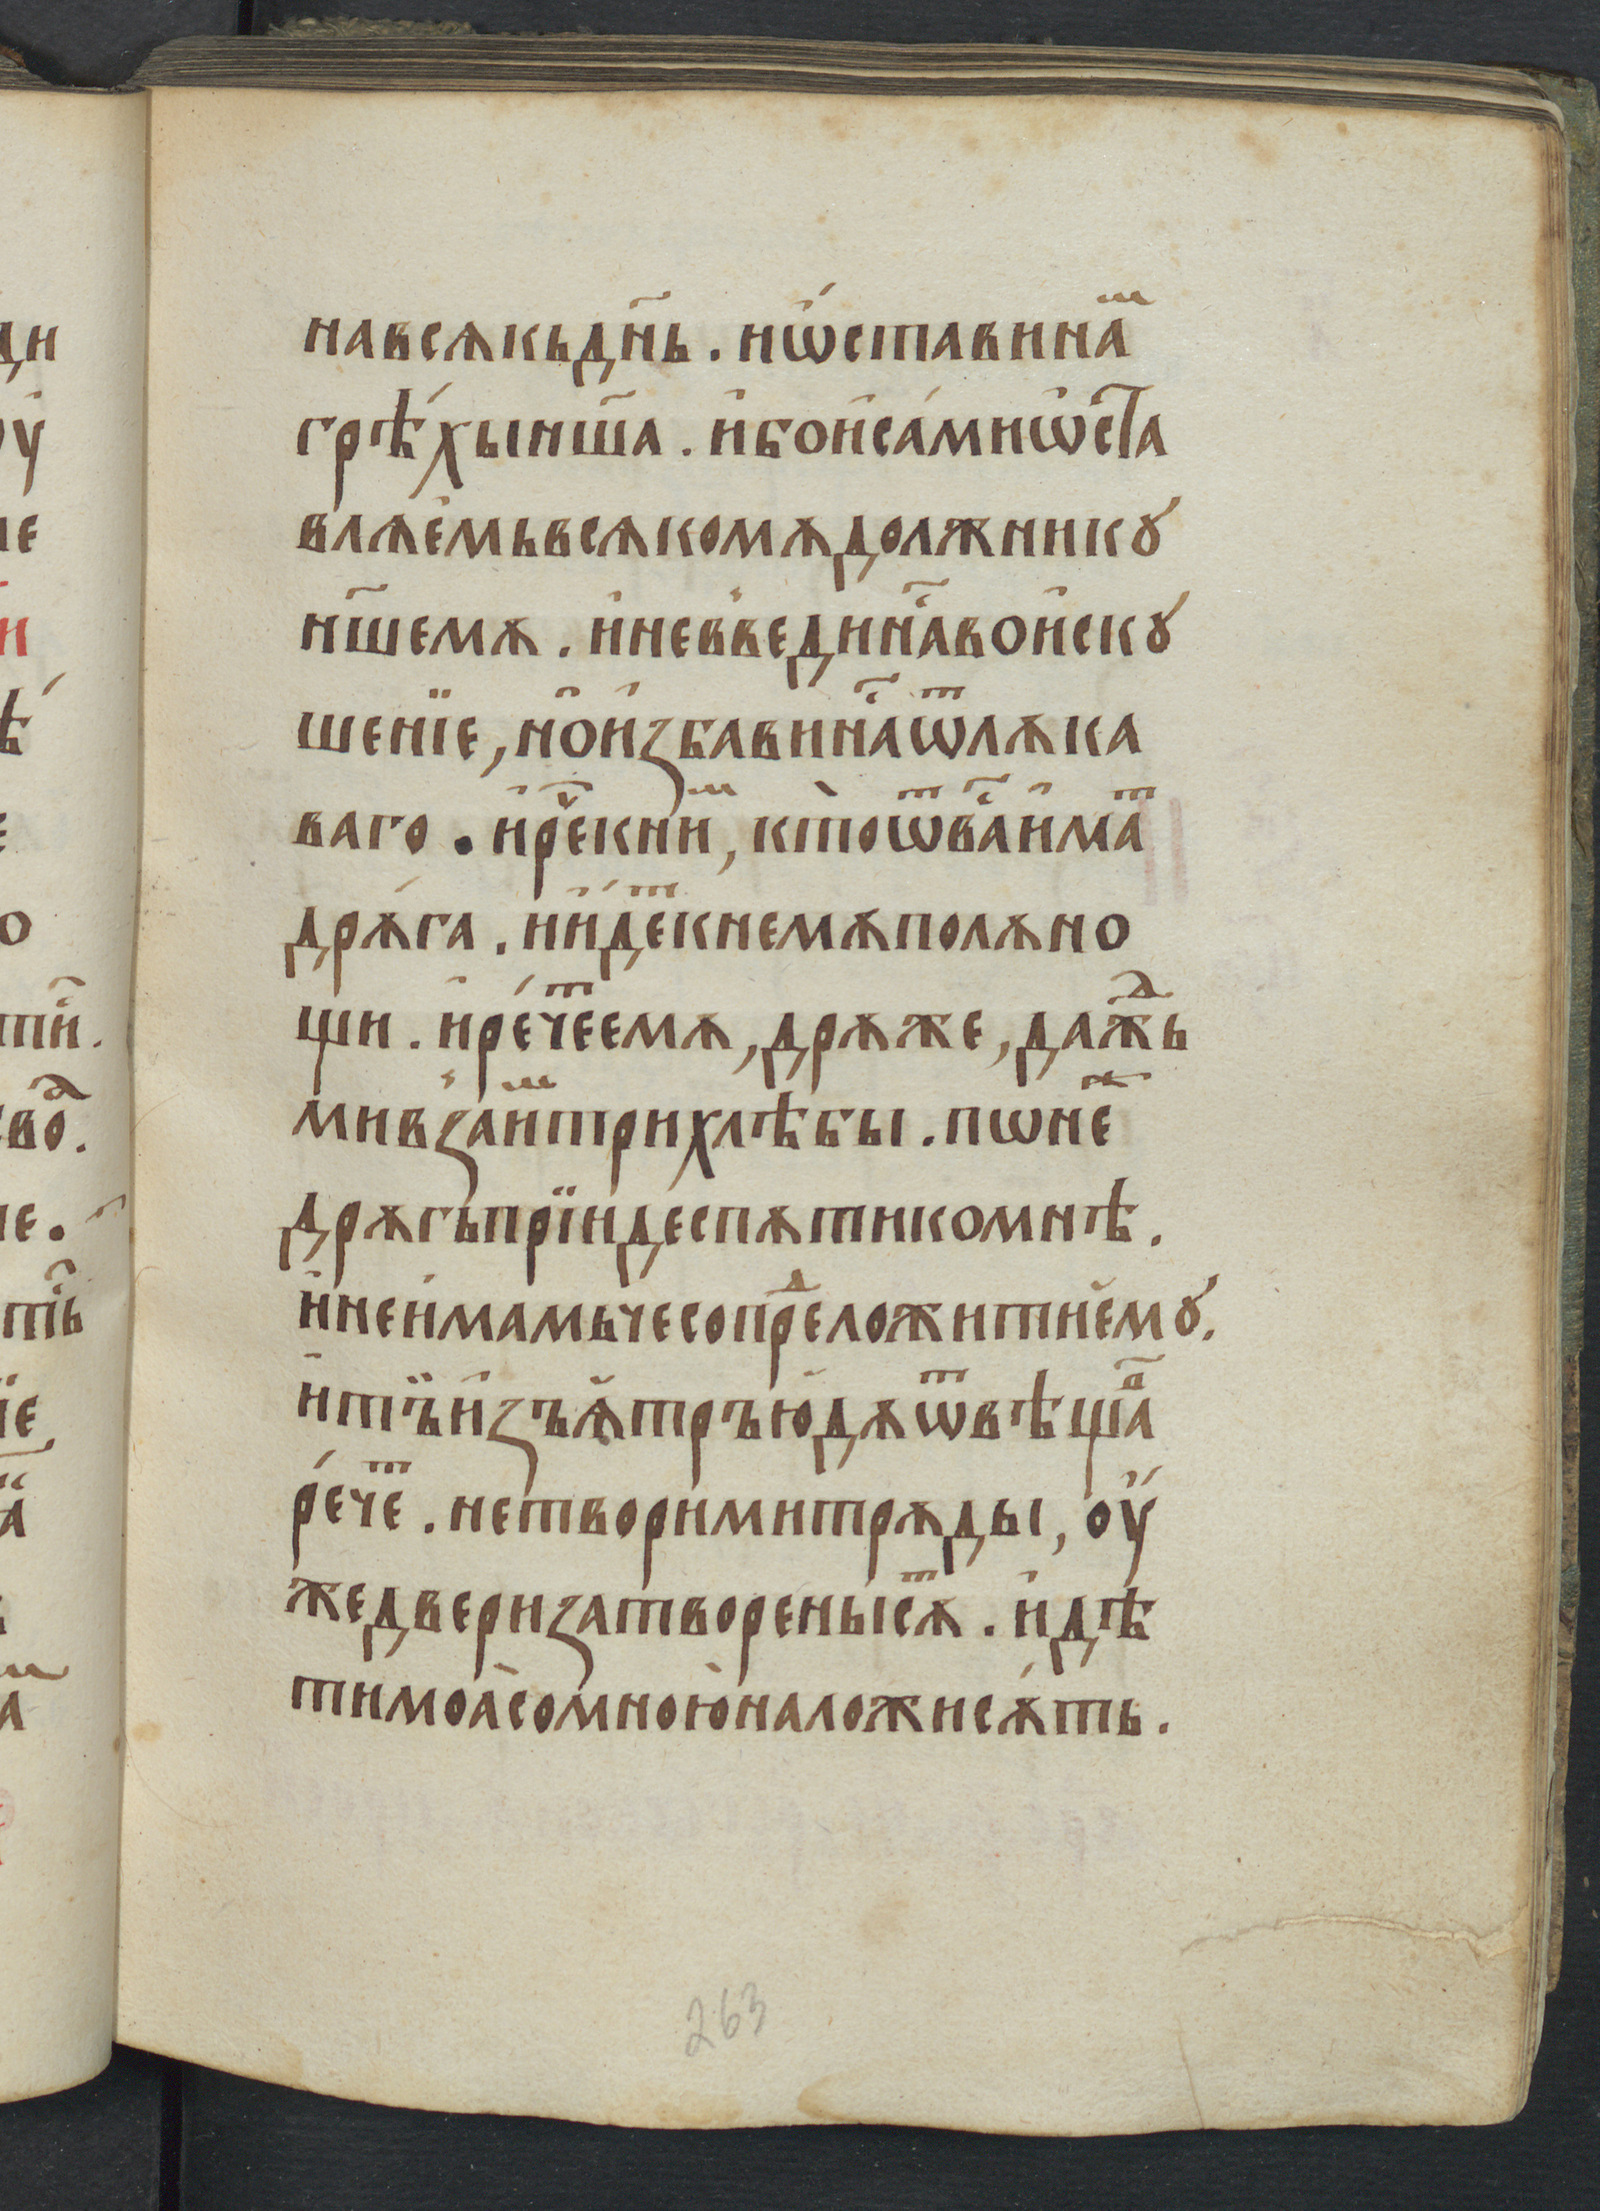 навсѧкьдн҃ь. иѡ҆ставинаⷨ҇
грѣ́хынш҃а. и҆боисамиѡ҆ст҃а
влѧе҆мьвсѧкомѫдолжникꙋ
нш҃емѫ. и҆невъведина҃ⷭвои҆скꙋ
шенїе, нои҆ꙁбавина҃ⷭѿлѫка
ваго. и҆рече҃книⷨ, ктоѿва҃ⷭи҆маⷮ
дрѫ́га. и҆и҆деⷮкнемѫполѫно
щи. и҆рече́ⷮемѫ, дрѫже, даⷤдь
мивꙁаиⷨтрихлѣбы. пѡнеⷤ
дрѫгьпрїидеспѫтикомнѣ.
и҆неи҆мамьчесопреⷣложитиемꙋ.
и҆тъи҆ꙁъѫтръю҆дѫѿвѣщаⷡ
ре́чеⷮ. нетворимитрѫды, оу҆
жедвериꙁатворены́сѫⷮ. и҆дѣ
тимоа҆сомною҆наложисѫ́ть.
263